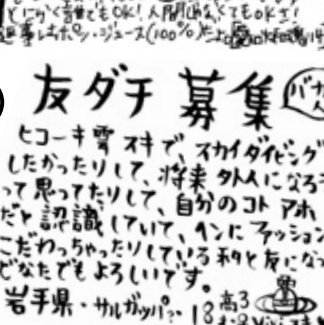 とにかく誰でもOK! 人間じゃなくてもOKさ!
友ダチ募集
ヒコーキ雲スキで、スカイダイビング
したかったりして、将来外人になろう
って思ってたりして、自分のコトアホ
だと認識していて、ヘンにファッション
こだわっちゃったりしている私と友になっ
どなたでもよろしいです。
岩手県・サルガッパ♂・18 高3